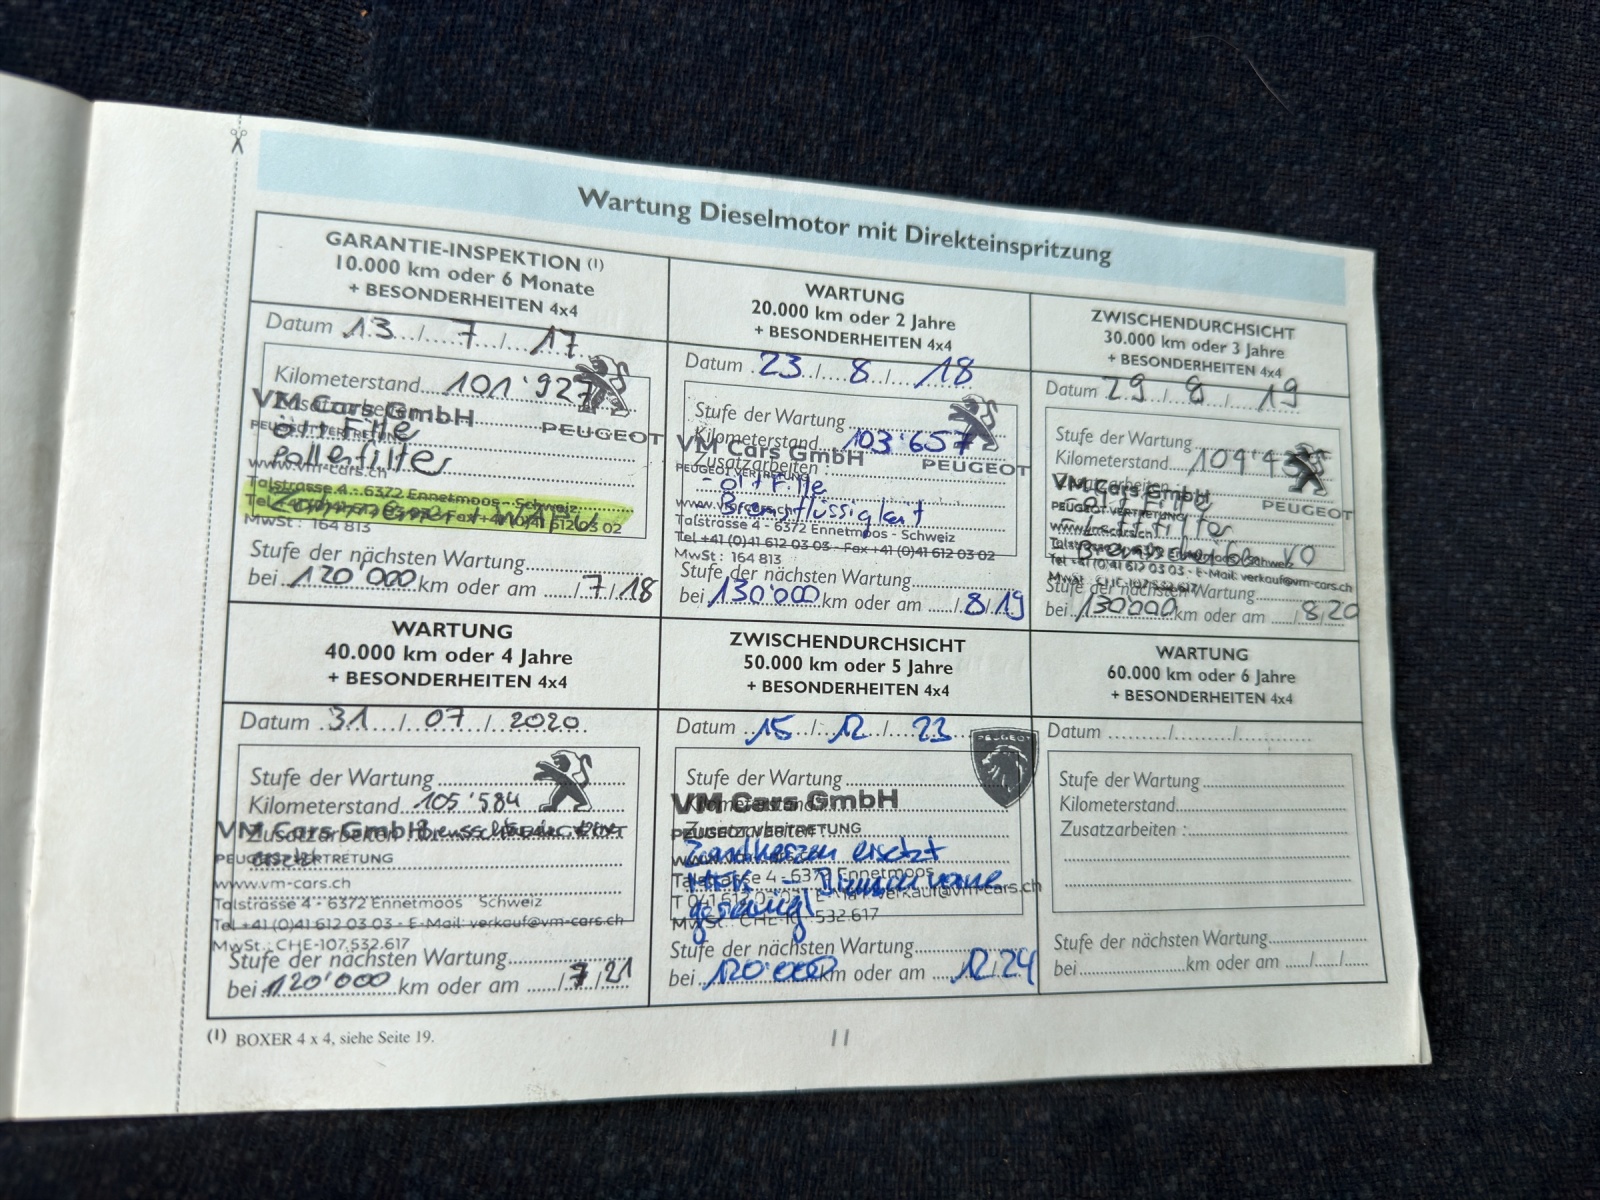 Wartung Dieselmotor mit Direkteinspritzung
GARANTIE-INSPEKTION (1)
10.000 km oder 6 Monate
+ BESONDERHEITEN 4x4
Datum 13 / 7 / 17
Kilometerstand 101'927
Zusatzarbeiten
PEUGEOT
VM Cars GmbH
PEUGEOT VERTRETUNG
öl + Filter
Pollenfilter
www.vm-cars.ch
Talstrasse 4 - 6372 Ennetmoos - Schweiz
Tel +41 (0)41 612 03 03 - Fax +41 (0)41 612 03 02
Zahnriemen + WAPU
MwSt : 164 813
Stufe der nächsten Wartung
bei 120'000 km oder am / 7 / 18
WARTUNG
20.000 km oder 2 Jahre
+ BESONDERHEITEN 4x4
Datum 23 / 8 / 18
Stufe der Wartung
Kilometerstand 103'657
Zusatzarbeiten :
VM Cars GmbH
PEUGEOT
PEUGEOT VERTRETUNG
- öl + Filter
- Bremsflüssigkeit
www.vm-cars.ch
Talstrasse 4 - 6372 Ennetmoos - Schweiz
Tel +41 (0)41 612 03 03 - Fax +41 (0)41 612 03 02
MwSt : 164 813
Stufe der nächsten Wartung
bei 130'000 km oder am / 8 / 19
ZWISCHENDURCHSICHT
30.000 km oder 3 Jahre
+ BESONDERHEITEN 4x4
Datum 29 / 8 / 19
Stufe der Wartung
Kilometerstand
VM Cars GmbH
PEUGEOT
PEUGEOT VERTRETUNG
- öl + Filter
- Luftfilter
www.vm-cars.ch
VO
Tel +41 (0)41 612 03 03 - E-Mail: verkauf@vm-cars.ch
MwSt : CHE-107.532.617
Stufe der nächsten Wartung
bei 130000 km oder am / 8 / 20
WARTUNG
40.000 km oder 4 Jahre
+ BESONDERHEITEN 4x4
Datum 31 / 07 / 2020
Stufe der Wartung
Kilometerstand 105'584
Zusatzarbeiten :
VM Cars GmbH
PEUGEOT VERTRETUNG
www.vm-cars.ch
Talstrasse 4 - 6372 Ennetmoos Schweiz
Tel +41 (0)41 612 03 03 - E-Mail: verkauf@vm-cars.ch
MwSt.: CHE-107.532.617
Stufe der nächsten Wartung
bei 120'000 km oder am / 7 / 21
ZWISCHENDURCHSICHT
50.000 km oder 5 Jahre
+ BESONDERHEITEN 4x4
Datum 15 / 12 / 23
PEUGEOT
Stufe der Wartung
Kilometerstand
VM Cars GmbH
Zusatzarbeiten :
PEUGEOT VERTRETUNG
Zündkerzen ersetzt
Talstrasse 4 - 6372 Ennetmoos
verkauf@vm-cars.ch
MwSt.: CHE-107.532.617
Stufe der nächsten Wartung
bei 120'000 km oder am 12/24
WARTUNG
60.000 km oder 6 Jahre
+ BESONDERHEITEN 4x4
Datum / /
Stufe der Wartung
Kilometerstand
Zusatzarbeiten :
Stufe der nächsten Wartung
bei km oder am / /
(1) BOXER 4 x 4, siehe Seite 19.
11